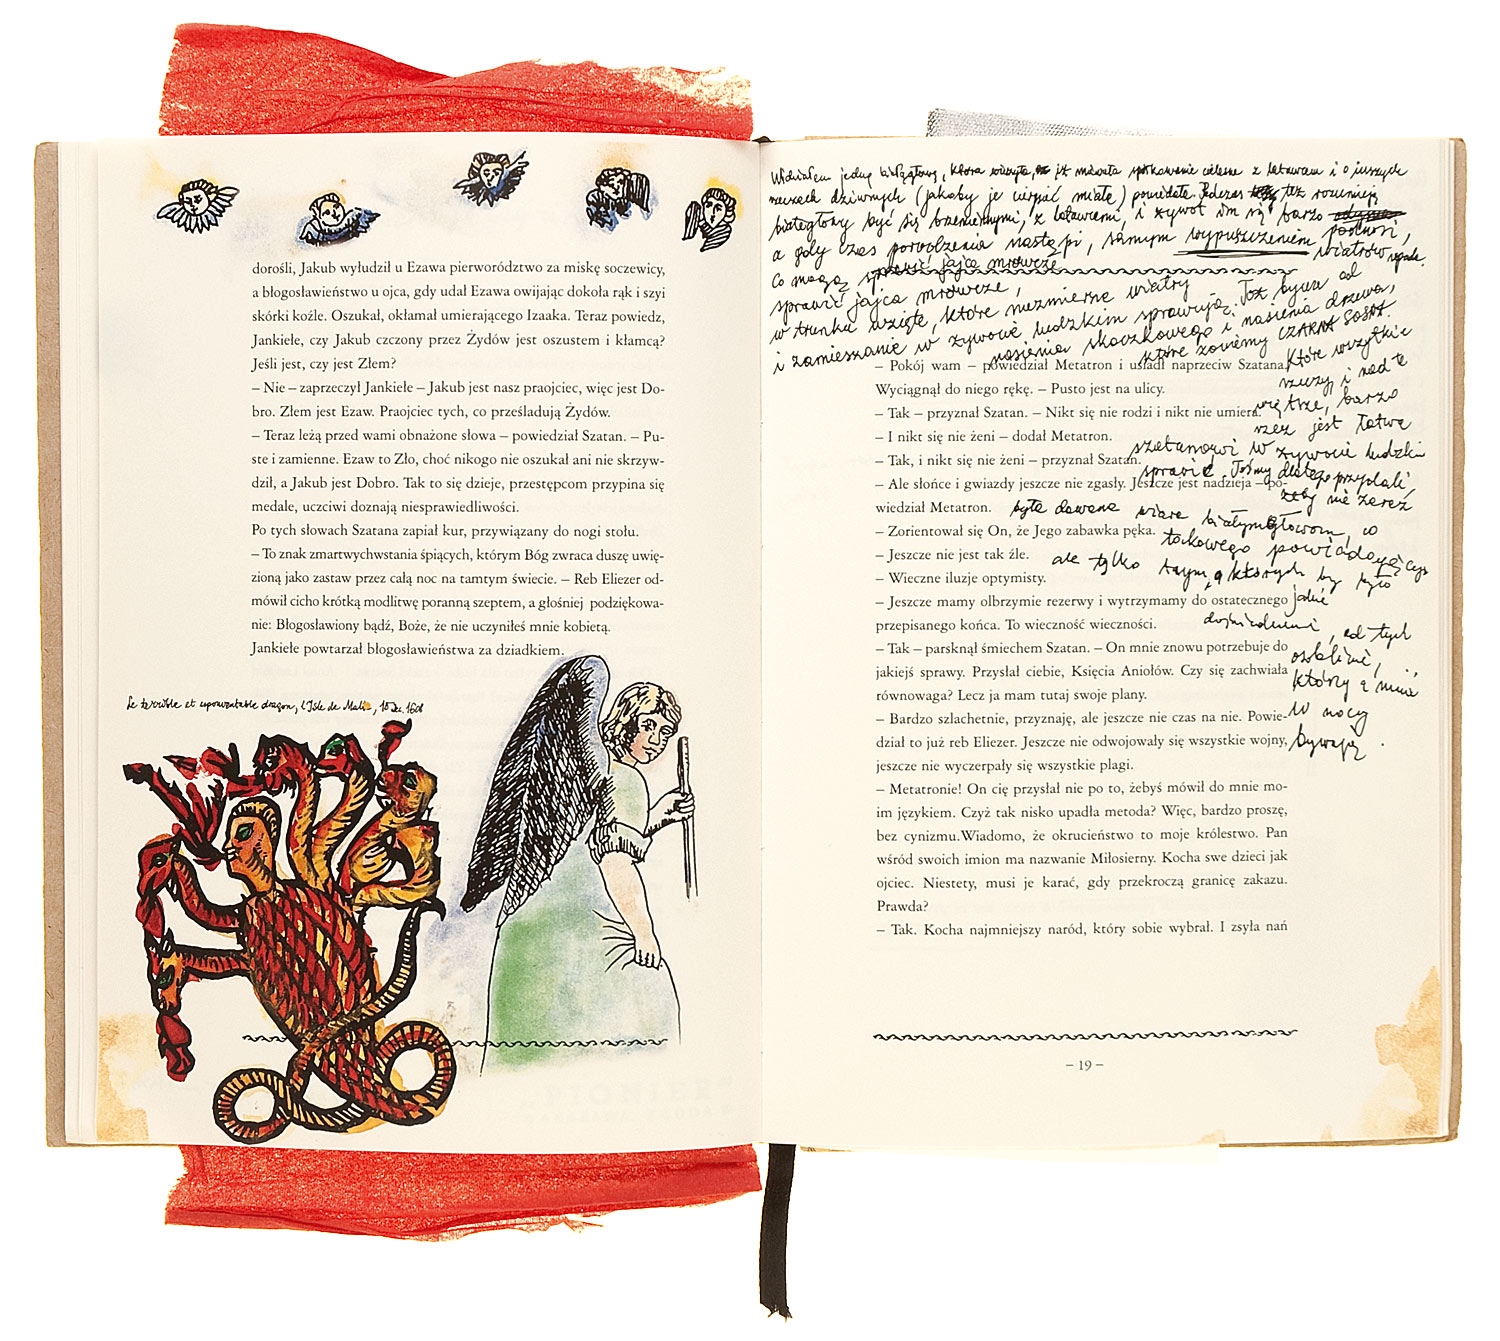 dorośli, Jakub wyłudził u Ezawa pierworództwo za miskę soczewicy,
a błogosławieństwo u ojca, gdy udał Ezawa owijając dokoła rąk i szyi
skórki koźle. Oszukał, okłamał umierającego Izaaka. Teraz powiedz,
Jankiele, czy Jakub czczony przez Żydów jest oszustem i kłamcą?
Jeśli jest, czy jest Złem?
– Nie – zaprzeczył Jankiele – Jakub jest nasz praojciec, więc jest Do-
bro. Złem jest Ezaw. Praojciec tych, co prześladują Żydów.
– Teraz leżą przed wami obnażone słowa – powiedział Szatan. – Pu-
ste i zamienne. Ezaw to Zło, choć nikogo nie oszukał ani nie skrzyw-
dził, a Jakub jest Dobro. Tak to się dzieje, przestępcom przypina się
medale, uczciwi doznają niesprawiedliwości.
Po tych słowach Szatana zapiał kur, przywiązany do nogi stołu.
– To znak zmartwychwstania śpiących, którym Bóg zwraca duszę uwię-
zioną jako zastaw przez całą noc na tamtym świecie. – Reb Eliezer od-
mówił cicho krótką modlitwę poranną szeptem, a głośniej podziękowa-
nie: Błogosławiony bądź, Boże, że nie uczyniłeś mnie kobietą.
Jankiele powtarzał błogosławieństwa za dziadkiem.
Le terrible et epouventable dragon, l'Isle de 1608
Widziałem jedną białągłowę, która iż miewała cielesne z latawcem i o inszych
rzeczach dziwnych (jakoby je cierpieć miała) powiedała. Podczas też rozumieją
białegłowy być się brzemiennymi, z latawcami, i żywot im się barzo podnosi,
a gdy czas porodzenia nastąpi, samym wypuszczeniem wiatrów upada.
Co mogą sprawić jajca mrówcze
sprawić jajca mrówcze,
w trunku wzięte, które niezmierne wiatry
i zamieszanie w żywocie ludzkim sprawują. Toż bywa od
nasienia skoczkowego i nasienia drzewa,
które zowiemy CZARNA SOSNA.
Które wszytkie
rzeczy i nad te
więtsze, barzo
rzecz jest łatwa
szatanowi w żywocie ludzkim
sprawić. Tośmy dlatego przydali,
żeby nie zaraz
była dawana wiara białymgłowom, co
takowego powiadają
ale tylko tym, o których by było
jakie
doświadczenie, od tych
osobliwie,
którzy z nimi
w nocy
bywają.
– Pokój wam – powiedział Metatron i usiadł naprzeciw Szatana.
Wyciągnął do niego rękę. – Pusto jest na ulicy.
– Tak – przyznał Szatan. – Nikt się nie rodzi i nikt nie umiera.
– I nikt się nie żeni – dodał Metatron.
– Tak, i nikt się nie żeni – przyznał Szatan.
– Ale słońce i gwiazdy jeszcze nie zgasły. Jeszcze jest nadzieja – po-
wiedział Metatron.
– Zorientował się On, że Jego zabawka pęka.
– Jeszcze nie jest tak źle.
– Wieczne iluzje optymisty.
– Jeszcze mamy olbrzymie rezerwy i wytrzymamy do ostatecznego
przepisanego końca. To wieczność wieczności.
– Tak – parsknął śmiechem Szatan. – On mnie znowu potrzebuje do
jakiejś sprawy. Przysłał ciebie, Księcia Aniołów. Czy się zachwiała
równowaga? Lecz ja mam tutaj swoje plany.
– Bardzo szlachetnie, przyznaję, ale jeszcze nie czas na nie. Powie-
dział to już reb Eliezer. Jeszcze nie odwojowały się wszystkie wojny,
jeszcze nie wyczerpały się wszystkie plagi.
– Metatronie! On cię przysłał nie po to, żebyś mówił do mnie mo-
im językiem. Czyż tak nisko upadła metoda? Więc, bardzo proszę,
bez cynizmu.Wiadomo, że okrucieństwo to moje królestwo. Pan
wśród swoich imion ma nazwanie Miłosierny. Kocha swe dzieci jak
ojciec. Niestety, musi je karać, gdy przekroczą granicę zakazu.
Prawda?
– Tak. Kocha najmniejszy naród, który sobie wybrał. I zsyła nań
– 19 –